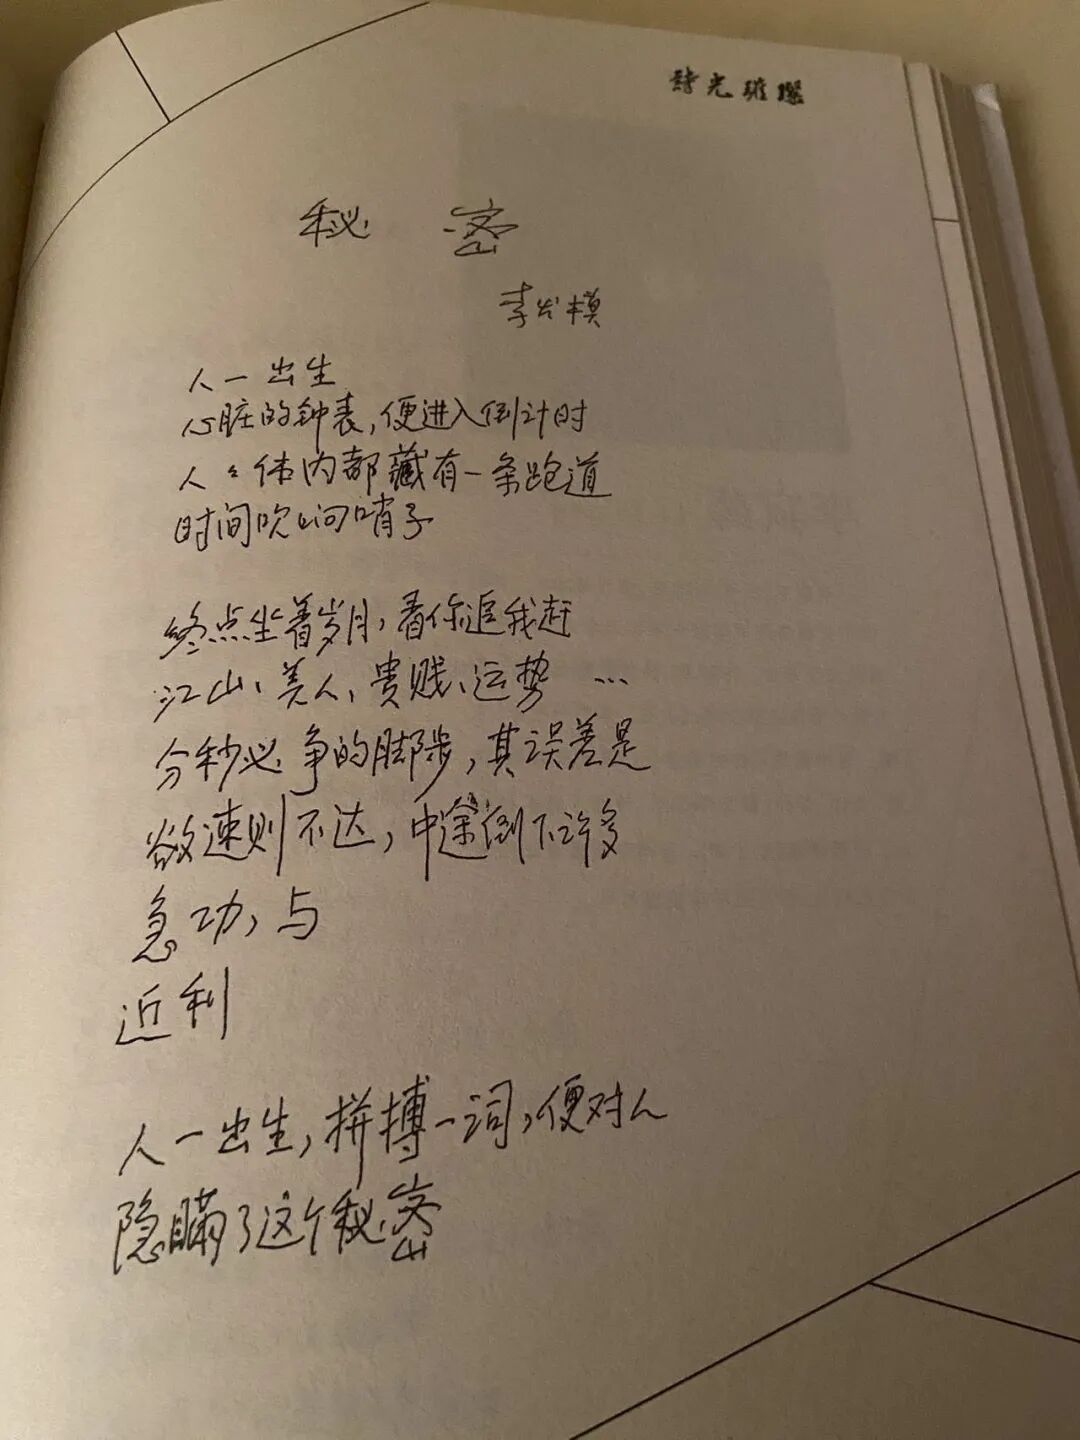 诗光璀璨
秘 密
李发模
人一出生
心脏的钟表,便进入倒计时
人々体内都藏有一条跑道
时间吹响哨子
终点坐着岁月,看你追我赶
江山、美人、贵贱、运势 …
分秒必争的脚步,其误差是
欲速则不达,中途倒下许多
急功,与
近利
人一出生,拼搏一词,便对人
隐瞒了这个秘密